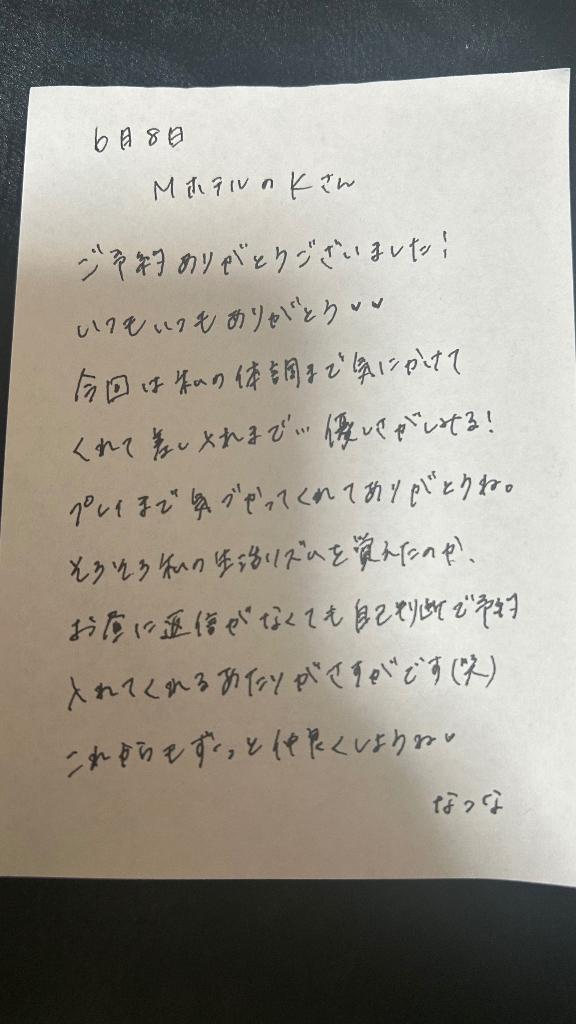 6月8日
MホテルのKさん
ご予約ありがとうございました!
いつもいつもありがとう♥♥
今回は私の体調まで気にかけて
くれて差し入れまで…優しさがしみる!
プレイまで気づかってくれてありがとうね。
そろそろ私の生活リズムを覚えたのか、
お昼に返信がなくても自己判断で予約
入れてくれるあたりがさすがです(笑)
これからもずっと仲良くしようね♥
なつな